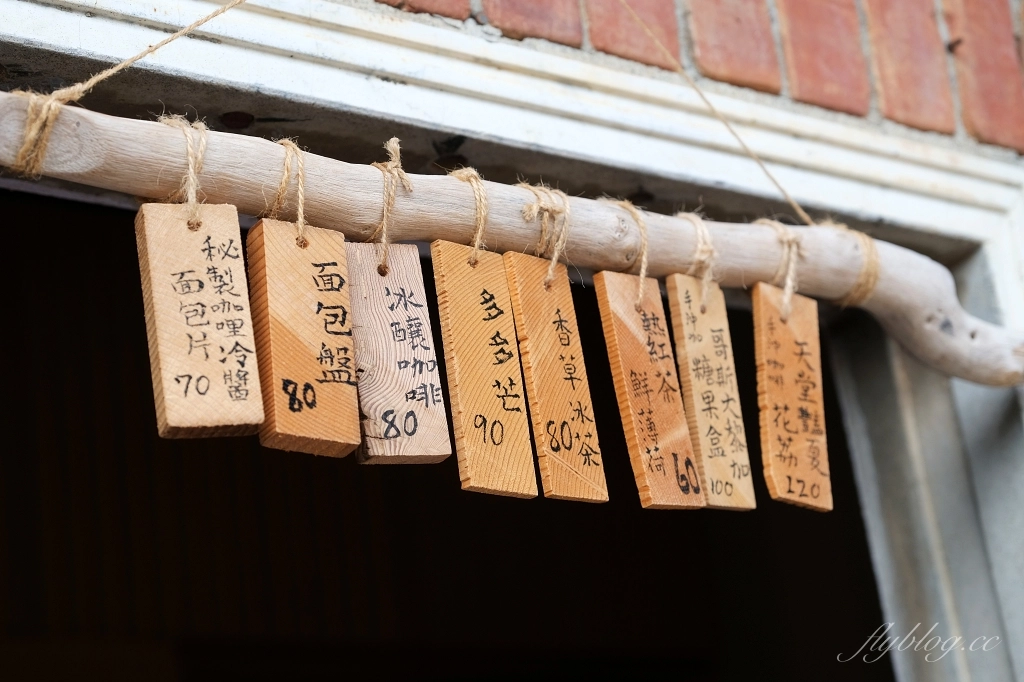 秘製咖哩冷醬
面包片
70
面包盤
80
冰釀咖啡
80
多多芒
90
香草冰茶
80
熱紅茶
鮮薄荷
60
手沖咖
哥斯大黎加
糖果盒
100
手沖咖啡
天堂豔夏
花荔
120
flyblog.cc